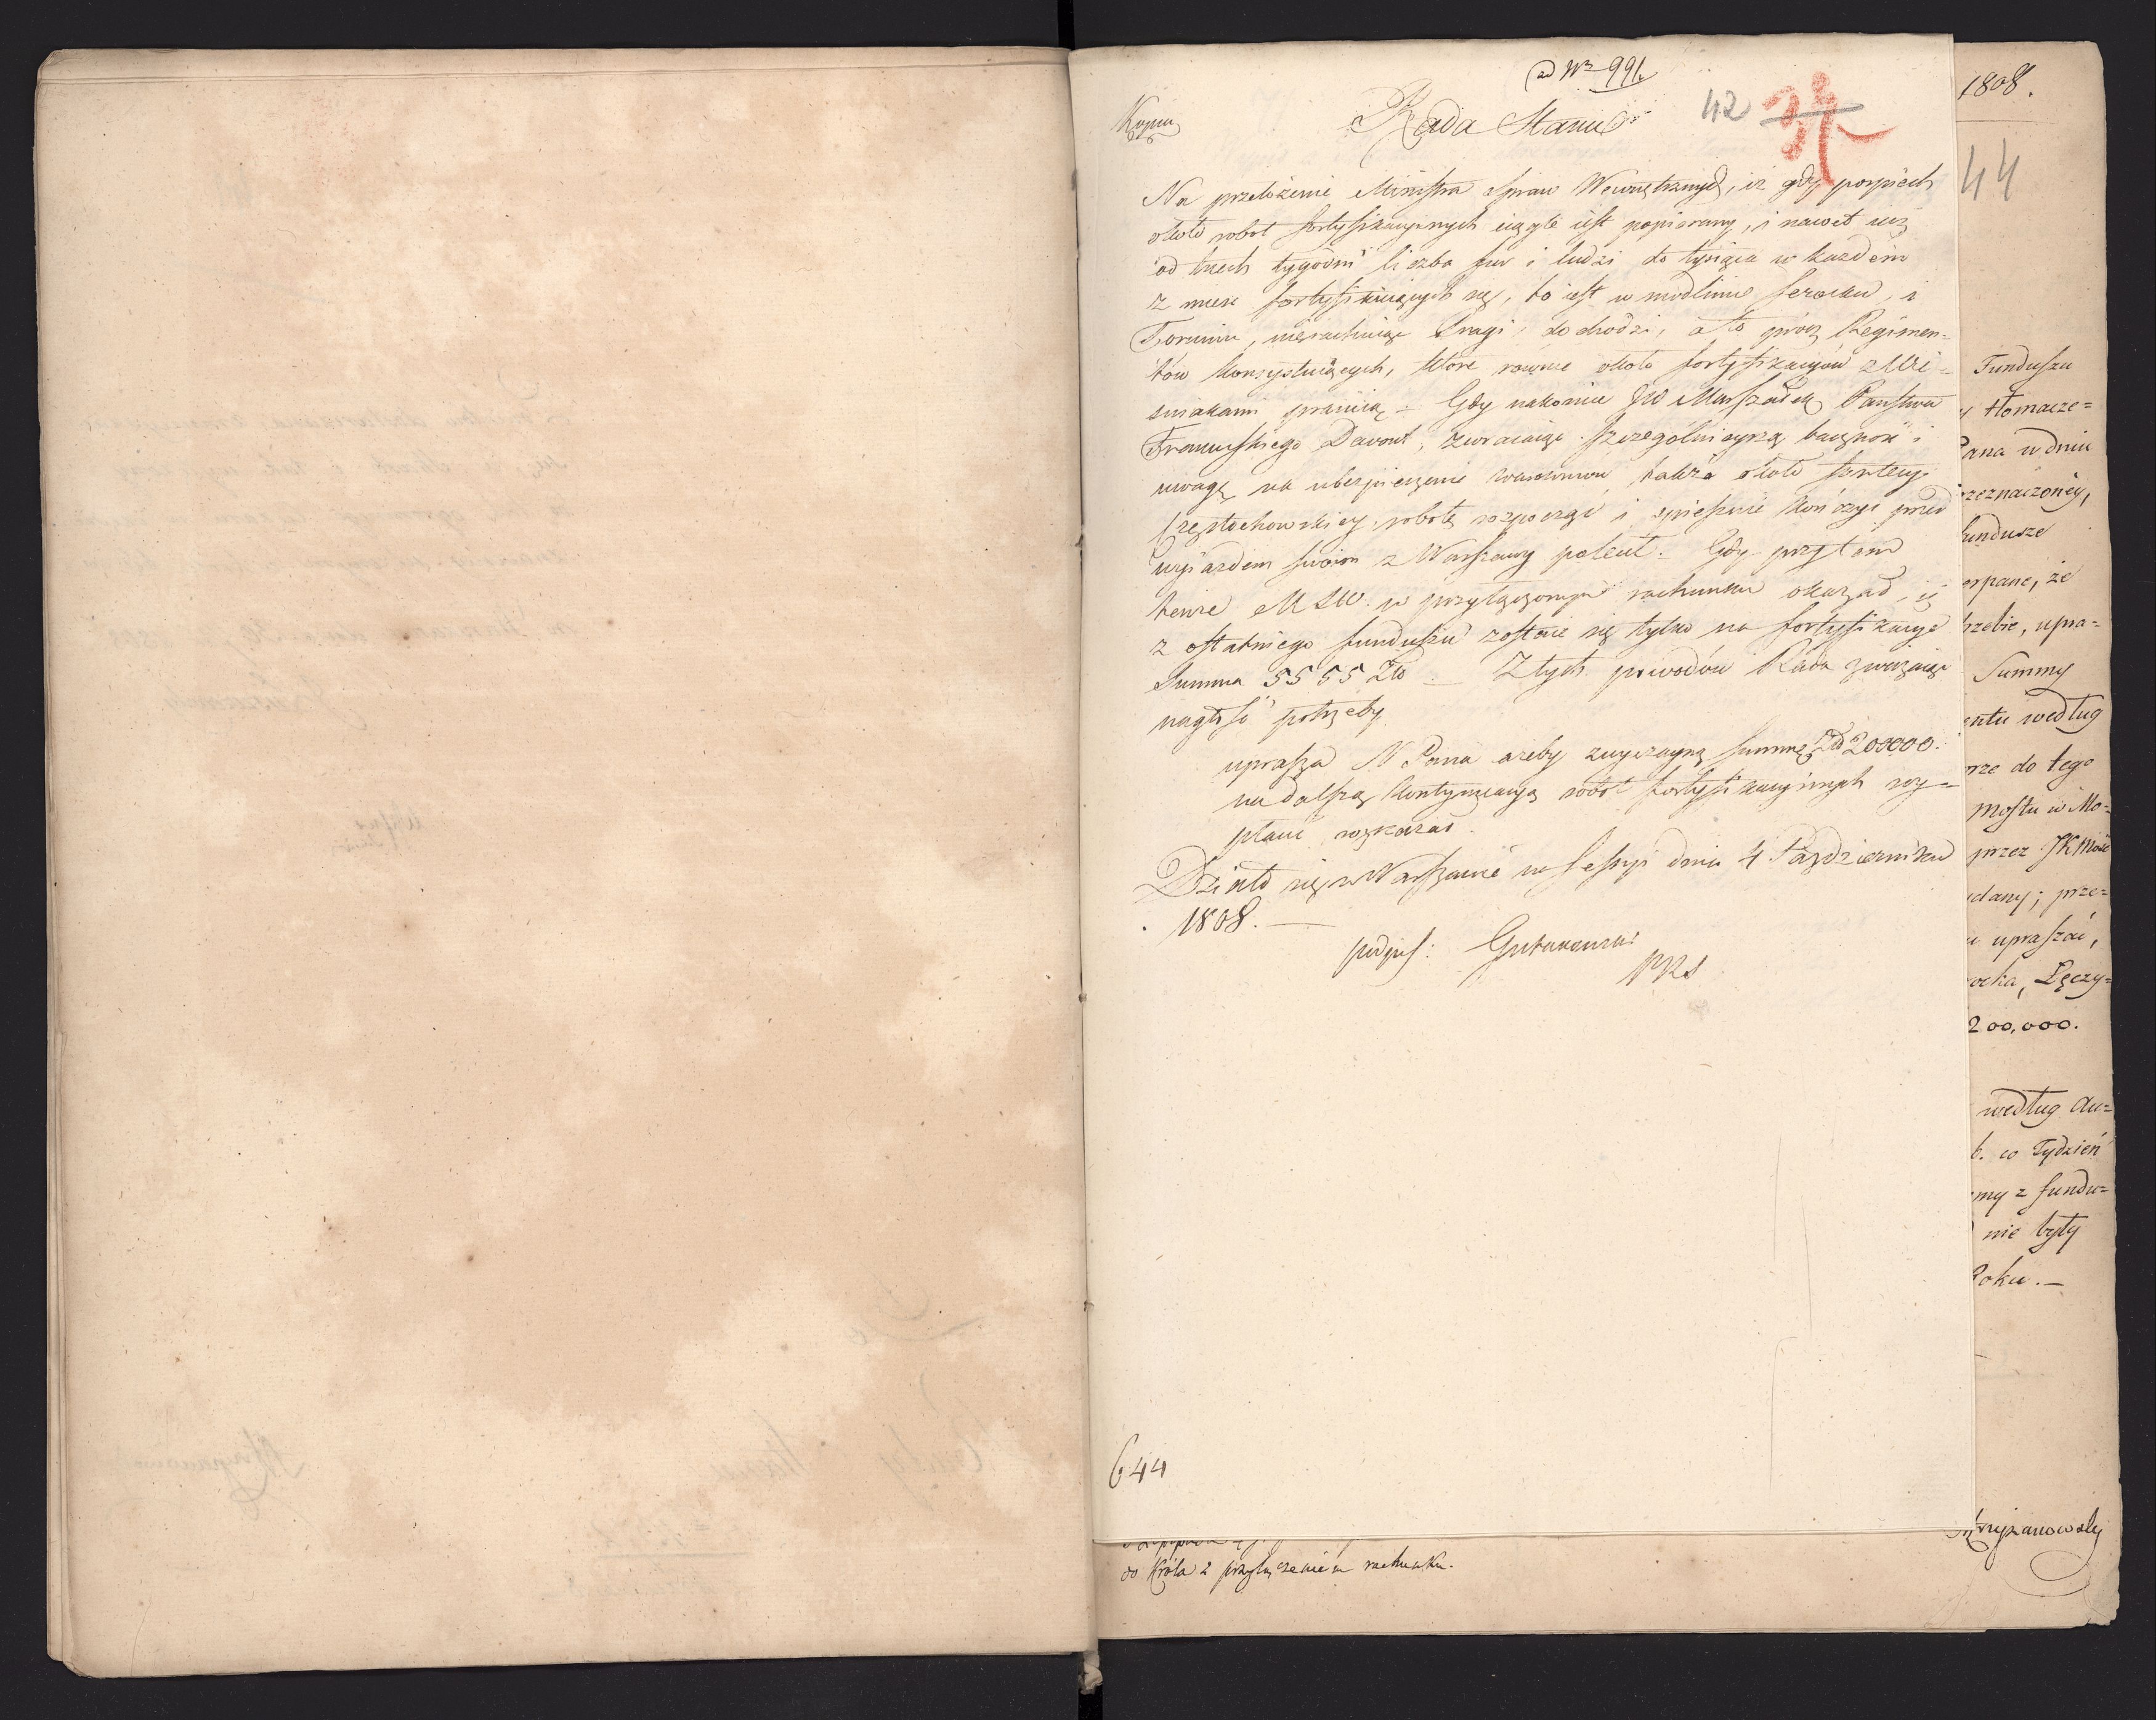 ad Nr 991
Kopia
Rada Stanu
42
Na przełożenie Ministra Spraw Wewnętrznych, iż gdy pospiech
około robot fortyfikacyinych ciągle iest popierany, i nawet iuż
od trzech tygodni liczba fur i ludzi do tysiąca w każdém
z mieysc fortyfikuiących się, to iest w Modlinie Serocku, i
Toruniu, nierachuiąc Pragi, dochodzi, a to prócz Regimen-
tów konsystuiących, które rownie około fortyfikacyów z Wie-
śniakami pracuią – Gdy nakoniec JW Marszałek Państwa
Francuskiego Davout, zwracaiąc szczególnieyszą baczność i
uwagę na ubezpieczenie warowni także około fortecy
Częstochowskiey robotę rozpocząć i spiesznie kończyć przed
wyiazdem swoim z Warszawy polecił. Gdy przytem
tenże MSW. w przyłączonym rachunku okazał, iż
z ostatniego funduszu zostaie się tylko na fortyfikacye
Summa 5555 Zło – Z tych powodów Rada zważaiąc
nagłość potrzeby
uprasza N Pana ażeby zwyczayną summę Zło 200000.
na dalszą kontynuacyą robot fortyfikacyinych wy-
płacić rozkazać.
Działo się w Warszawie na Sessyi dnia 4 Października
1808. –
podpis: Gutakowski
PRS
644
do Króla z przyłączeniem rachunku.
1808.
44
Funduszu
tłomacze=
Pana w dniu
zeznaczoney,
fundusze
erpane, że
trzebie, upra=
Summy
entu według
rze do tego
mostu w Mo=
przez JKMość
dany; prze=
upraszać,
ocka, Łęczy=
200,000.
według du=
b. co Tydzień
my z fundu=
nie były
Roku. –
Krzyżanowski